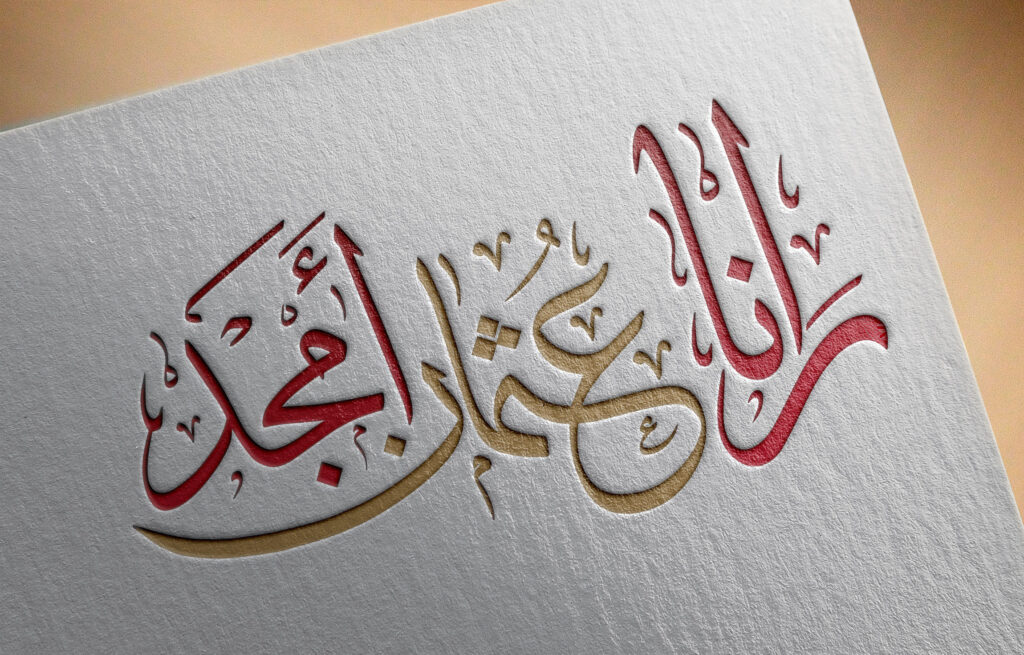 رانا عُثمان أمجد